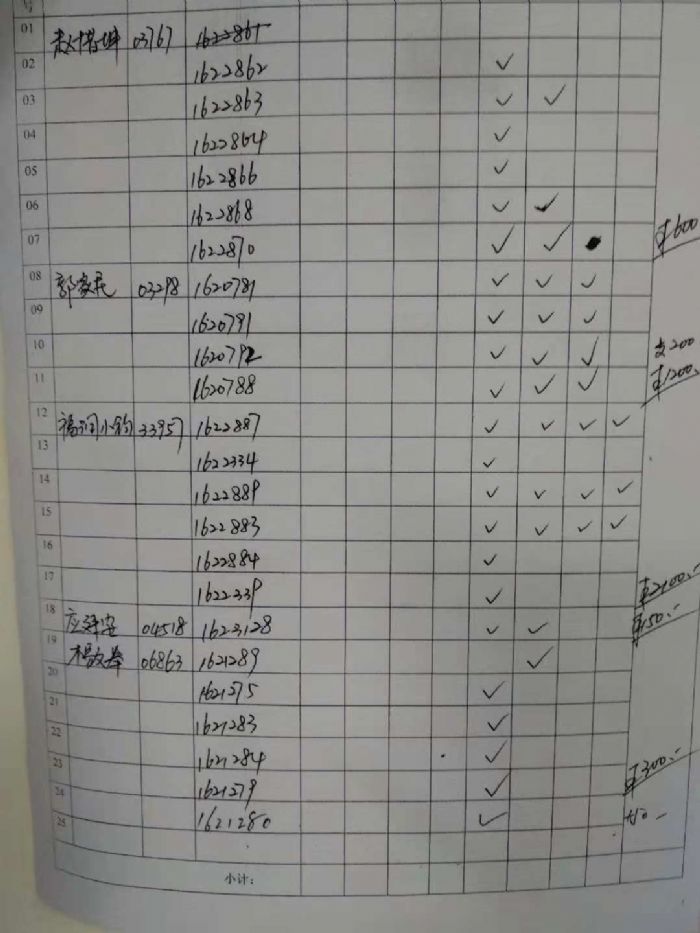 号
01 03767 1622861
02 1622862 ✓
03 1622863 ✓ ✓
04 1622864 ✓
05 1622866 ✓
06 1622868 ✓ ✓
07 1622870 ✓ ✓ 600
08 03298 1620781 ✓ ✓ ✓
09 1620791 ✓ ✓ ✓
10 1620792 ✓ ✓ ✓ 200
11 1620788 ✓ ✓ ✓ 1200
12 33957 1622887 ✓ ✓ ✓ ✓
13 1622334 ✓
14 1622889 ✓ ✓ ✓ ✓
15 1622883 ✓ ✓ ✓ ✓
16 1622884 ✓
17 1622339 ✓ 2100.-
18 04518 1623128 ✓ ✓ 150.-
19 06863 1621289 ✓
20 1621275 ✓
21 1621283 ✓
22 1621284 ✓
23 1621279 ✓ 300.-
24 1621280 ✓
25
小计：